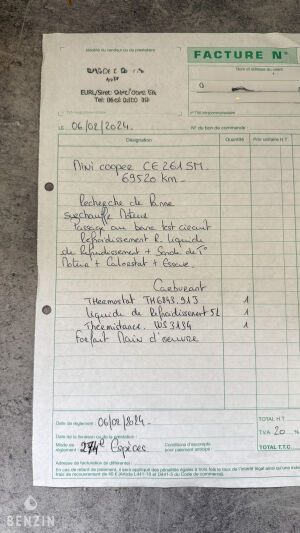 Identité du vendeur ou du prestataire
FACTURE N°
Nom et adresse du client
EURL/Siret
Tel:
N° Tél
LE : 06/02/2024.
N° du bon de commande :
Désignation
Quantité
Prix unitaire H.T.
Mini cooper CE 261 SM.
69520 km.
Recherche de Panne
surchauffe Moteur
Passage au banc test circuit
Refroidissement R. liquide
de Refroidissement + Sonde de T°
Moteur + Calorstat + Essence
Carburant
THermostat TH6843.91J 1
liquide de Refroidissement 5L 1
Thermistance WS3134 1
Forfait Main d'oeuvre
Date de règlement : 06/02/2024.
Date de la livraison ou de la prestation :
Mode de règlement : 274€ Espèces
Conditions d'escompte
pour paiement anticipé :
Adresse de facturation (si différente) :
TOTAL H.T.
TVA 20 %
TOTAL T.T.C.
En cas de retard de paiement, il sera appliqué des pénalités égales à trois fois le taux de l'intérêt légal ainsi qu'une
frais de recouvrement de 40 €
BENZIN